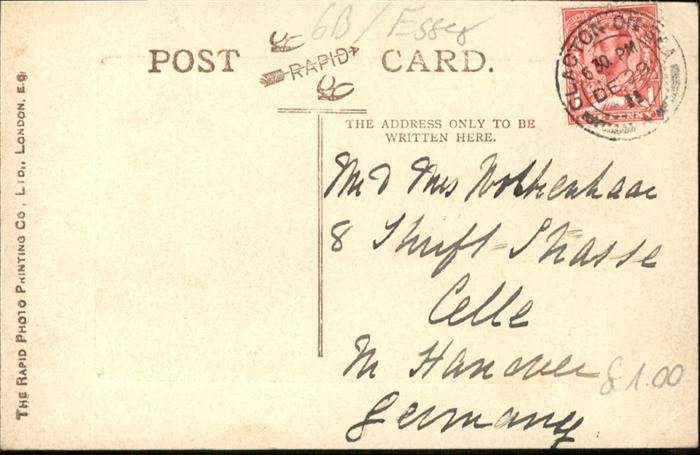 6B/ Essex
POST CARD.
RAPID
THE ADDRESS ONLY TO BE
WRITTEN HERE.
CLACTON-ON-SEA
6 30 PM
DE
13
Mr & Mrs
8 Strasse
Celle
Hanover
Germany
8 1.00
THE RAPID PHOTO PRINTING CO., LTD., LONDON, E.C.